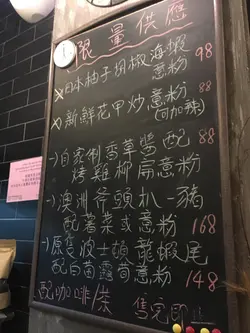 限量供應
x日本柚子胡椒海蝦
意粉 98
x新鮮花甲炒意粉 88
(可加辣)
-)自家制香草醬配 88
烤雞柳扁意粉
-)澳洲斧頭扒-豬
配薯菜或意粉 168
-)原隻波士頓龍蝦尾
配白菌露筍意粉 148
配咖啡/茶 售完即止